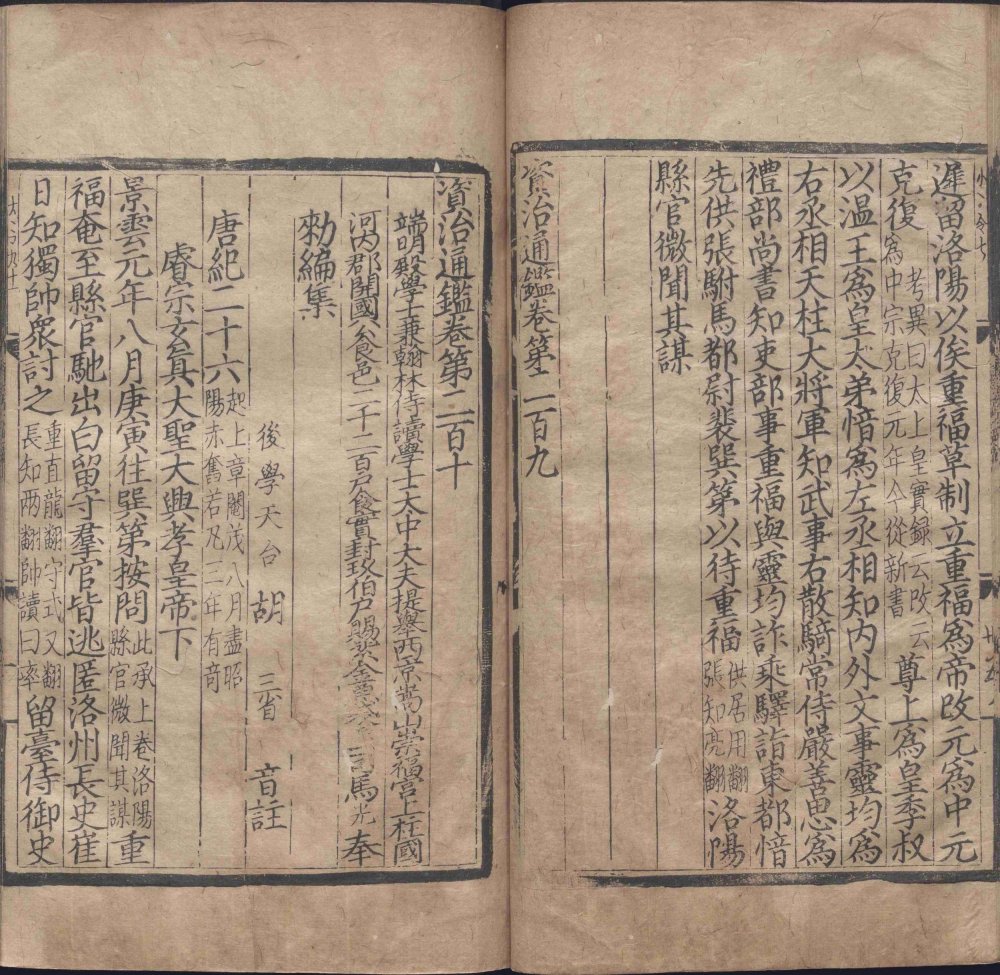 遲留洛陽以俟重福草制立重福為帝改元為中元
克復考異曰太上皇實録云改云為中宗克復元年今從新書尊上為皇季叔
以温王為皇太弟愔為左丞相知内外文事靈均為
右丞相天柱大將軍知武事右散騎常侍嚴善思為
禮部尚書知吏部事重福與靈均詐乘驛詣東都愔
先供張駙馬都尉裴巽第以待重福供居用翻張知亮翻洛陽
縣官微聞其謀
資治通鑑卷第二百九
資治通鑑卷第二百十
端明殿學士兼翰林侍讀學士太中大夫提舉西京嵩山崇福宮上柱國
河内郡開國公食邑二千二百戸食實封玖伯戸賜紫金魚袋臣司馬光奉
勑編集
後學天台胡三省音註
唐紀二十六起上章閹茂八月盡昭陽赤奮若凡三年有奇
睿宗玄真大聖大興孝皇帝下
景雲元年八月庚寅往巽第按問此承上卷洛陽縣官微聞其謀重
福奄至縣官馳出白留守羣官皆逃匿洛州長史崔
日知獨帥衆討之重直龍翻守式又翻長知兩翻帥讀曰率留臺侍御史